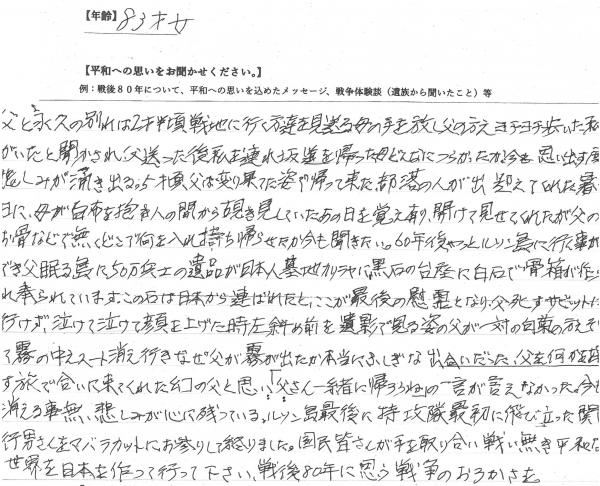 【年齢】 83才女
【平和への思いをお聞かせください。】
例：戦後８０年について、平和への思いを込めたメッセージ、戦争体験談（遺族から聞いたこと）等
父と永久の別れは2才半頃戦地に行く方達を見送る母の手を放し父の方えヨチヨチ歩いた私
がいたと聞かされ、父送った後私を連れ坂道を帰った母どんなにつらかったか今も思い出す度
悲しみが涌き出る。5才頃父は変り果てた姿で帰って来た。部落の人が出迎えてくれた暑い
日に、母が白布を抱き人の間から覗き見していたあの日を覚え有り、開けて見せてくれたが父の
お骨などで無く、どこで何を入れ持ち帰らせたか今も聞きたい。60年後やっとルソン島に行く事が
でき父眠る島に50万兵士の遺品が日本人墓地カリラヤに黒石の台座に白石で骨箱が作ら
れ奉られています。この石は日本から運ばれたと、ここが最後の慰霊となり、父死すサビットだ
行けず、泣けて泣けて顔を上げた時左斜め前を遺影で見る姿の父が一対の白菊の方えそし
て霧の中えスート消え行きなぜ父が霧が出たか本当にふしぎな出会いだった、父を何が
す旅で合いに来てくれた幻の父と思い「父さん一緒に帰ろうね」の一言が言えなかった。今も
消える事無、悲しみが心に残っている。ルソン島最後に特攻隊最初に飛び立った関
行男さんをマバラカットにお参りして終りました。国民皆さんが手を取り合い戦い無き平和な
世界を日本を作って行って下さい、戦後80年に思う戦争のおろかさを。